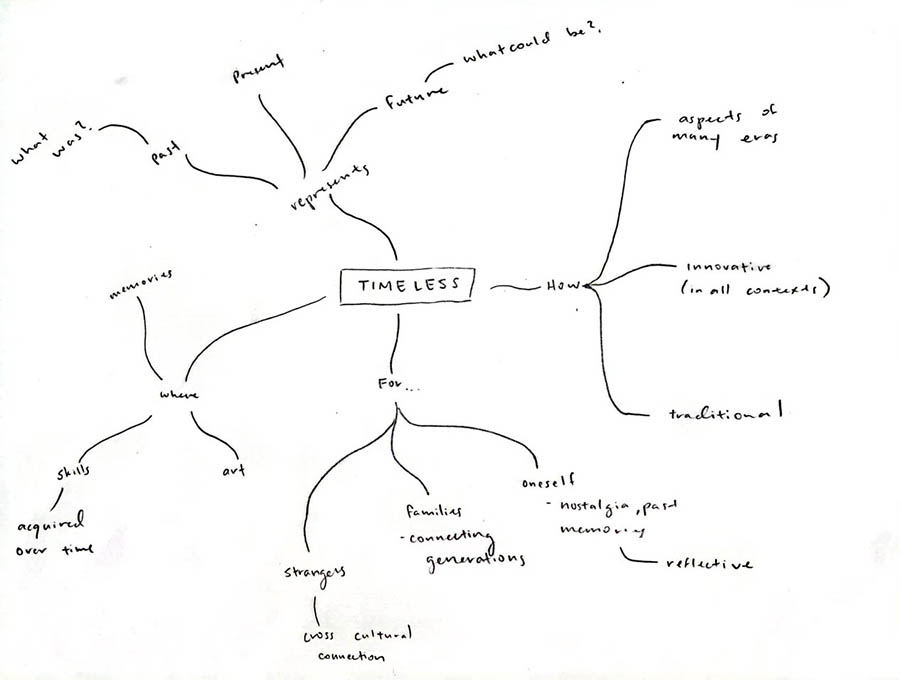 what could be?
Present
Future
what
was?
Past
represents
aspects of
many eras
memories
TIMELESS
How
innovative
(in all contexts)
where
For...
traditional
skills
art
acquired
over time
oneself
- nostalgia, past
memories
families
- connecting
generations
reflective
strangers
cross cultural
connection